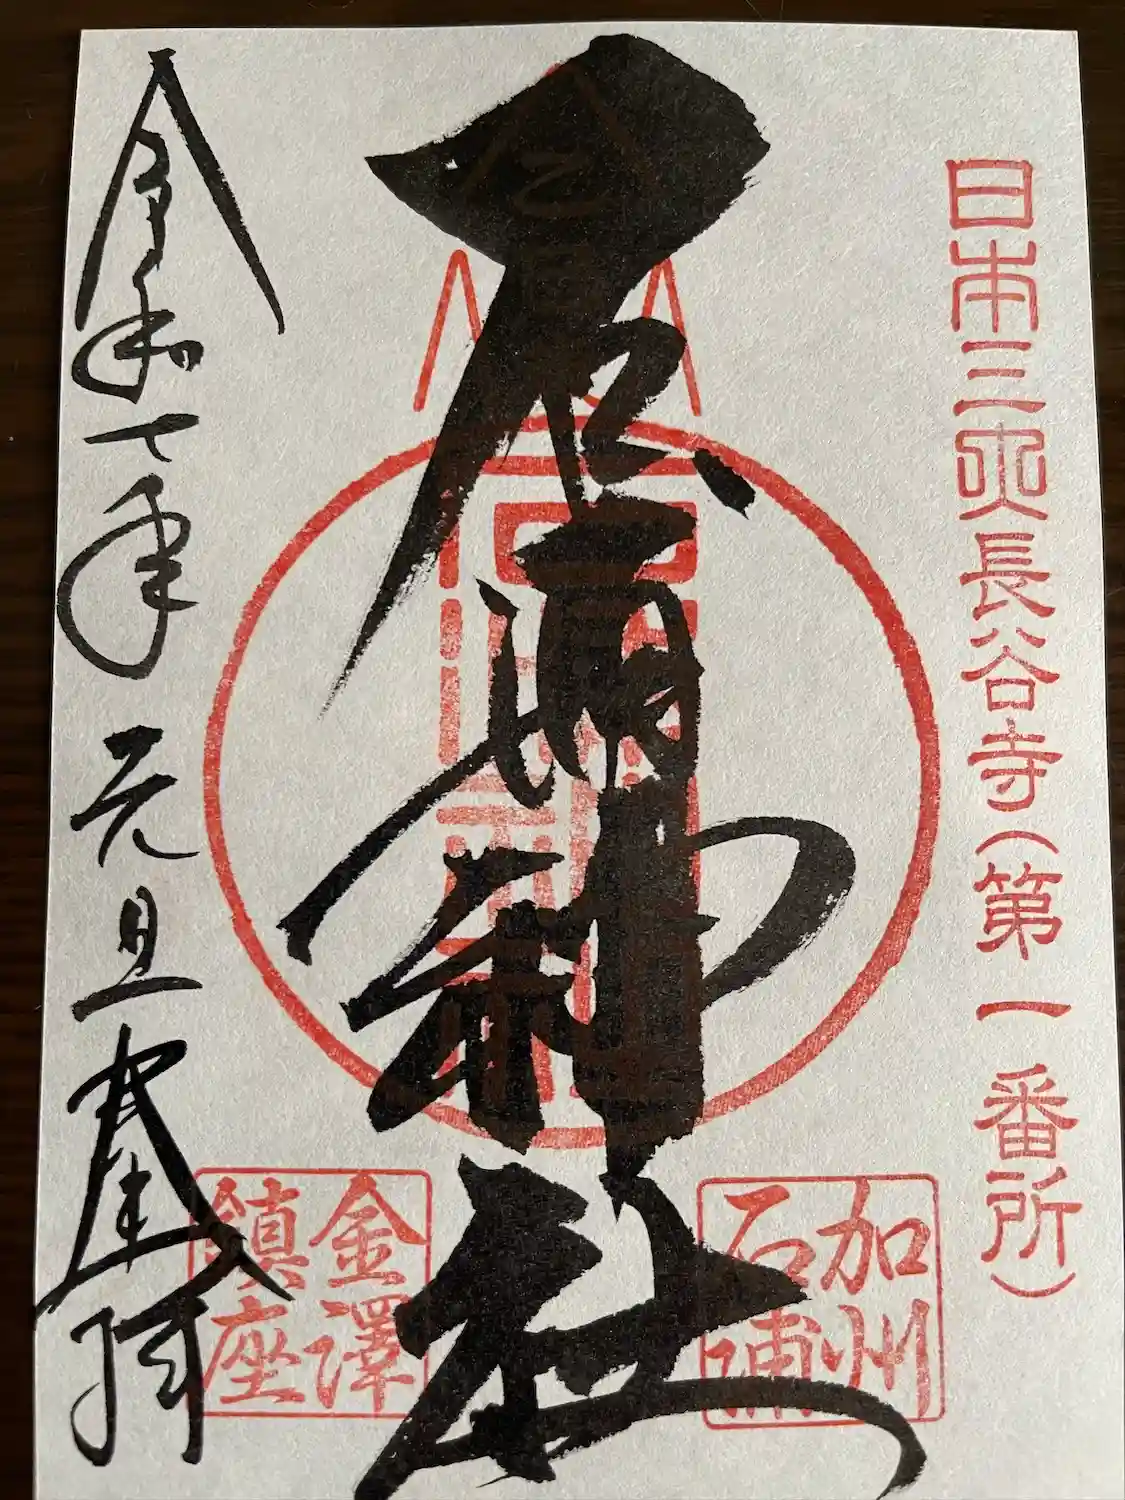 日本三所長谷寺(第一番所)
加州
石浦
石浦神社
金澤
鎮座
令和七年元旦奉拝